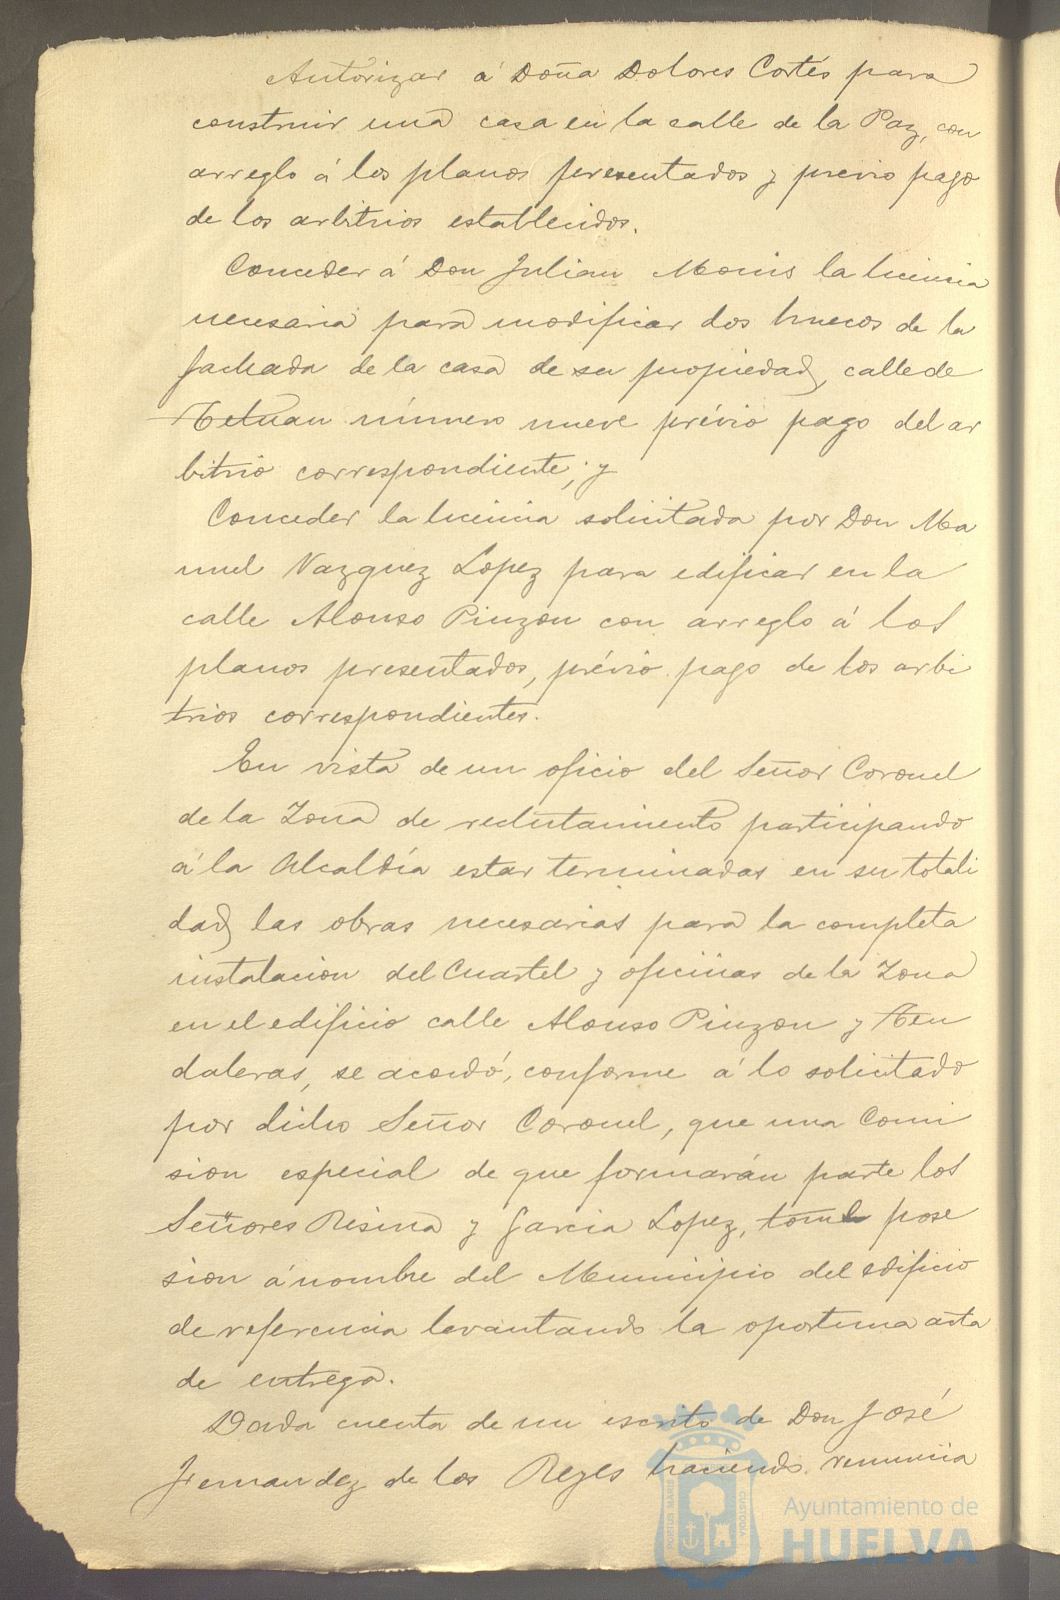 Autorizar á Doña Dolores Cortés para
construir una casa en la calle de la Paz, con
arreglo á los planos presentados y previo pago
de los arbitrios establecidos.
Conceder á Don Julian Monis la licencia
necesaria para modificar dos huecos de la
fachada de la casa de su propiedad, calle de
Tetuan número nueve prévio pago del ar
bitrio correspondiente; y
Conceder la licencia solicitada por Don Ma
nuel Vazquez Lopez para edificar en la
calle Alonso Pinzon con arreglo á los
planos presentados, prévio pago de los arbi
trios correspondientes.
En vista de un oficio del Señor Coronel
de la Zona de reclutamiento participando
á la Alcaldía estar terminadas en su totali
dad las obras necesarias para la completa
instalacion del Cuartel y oficinas de la Zona
en el edificio calle Alonso Pinzon y Ten
daleras, se acordó, conforme á lo solicitado
por dicho Señor Coronel, que una Comi
sion especial de que formarán parte los
Señores Resina y Garcia Lopez, tome pose
sion á nombre del Municipio del edificio
de referencia levantando la oportuna acta
de entrega.
Dada cuenta de un escrito de Don José
Fernandez de los Reyes haciendo renuncia
PORTUS MARIS
CUSTODIA
Ayuntamiento de
HUELVA